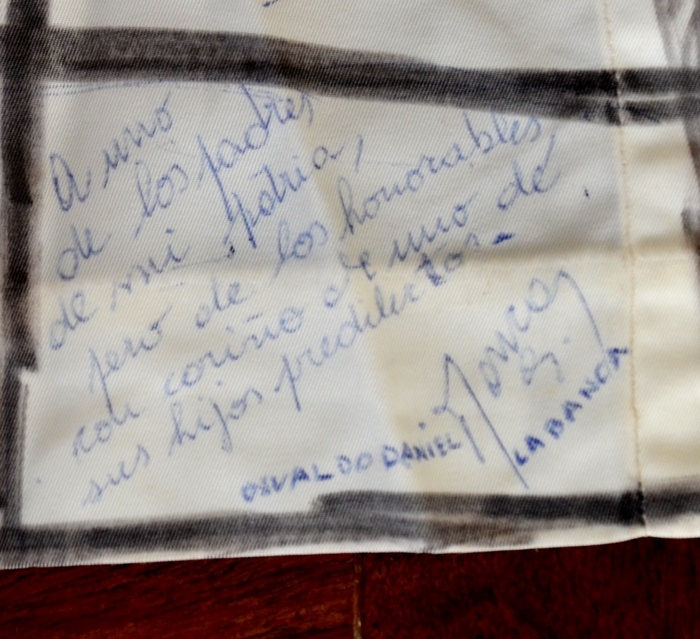 A uno
de los padres
de mi patria,
pero de los honorables,
con cariño de uno de
sus hijos predilectos -
OSVALDO DANIEL
LABANCA